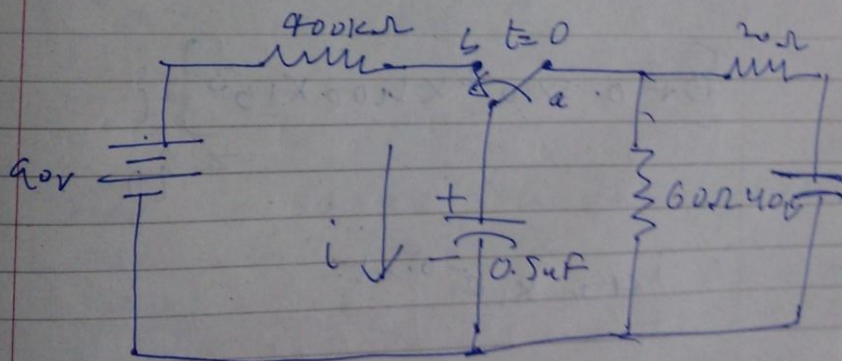 400kΩ
b t=0
20Ω
a
90v
i
+
-
0.5uF
60Ω
40v